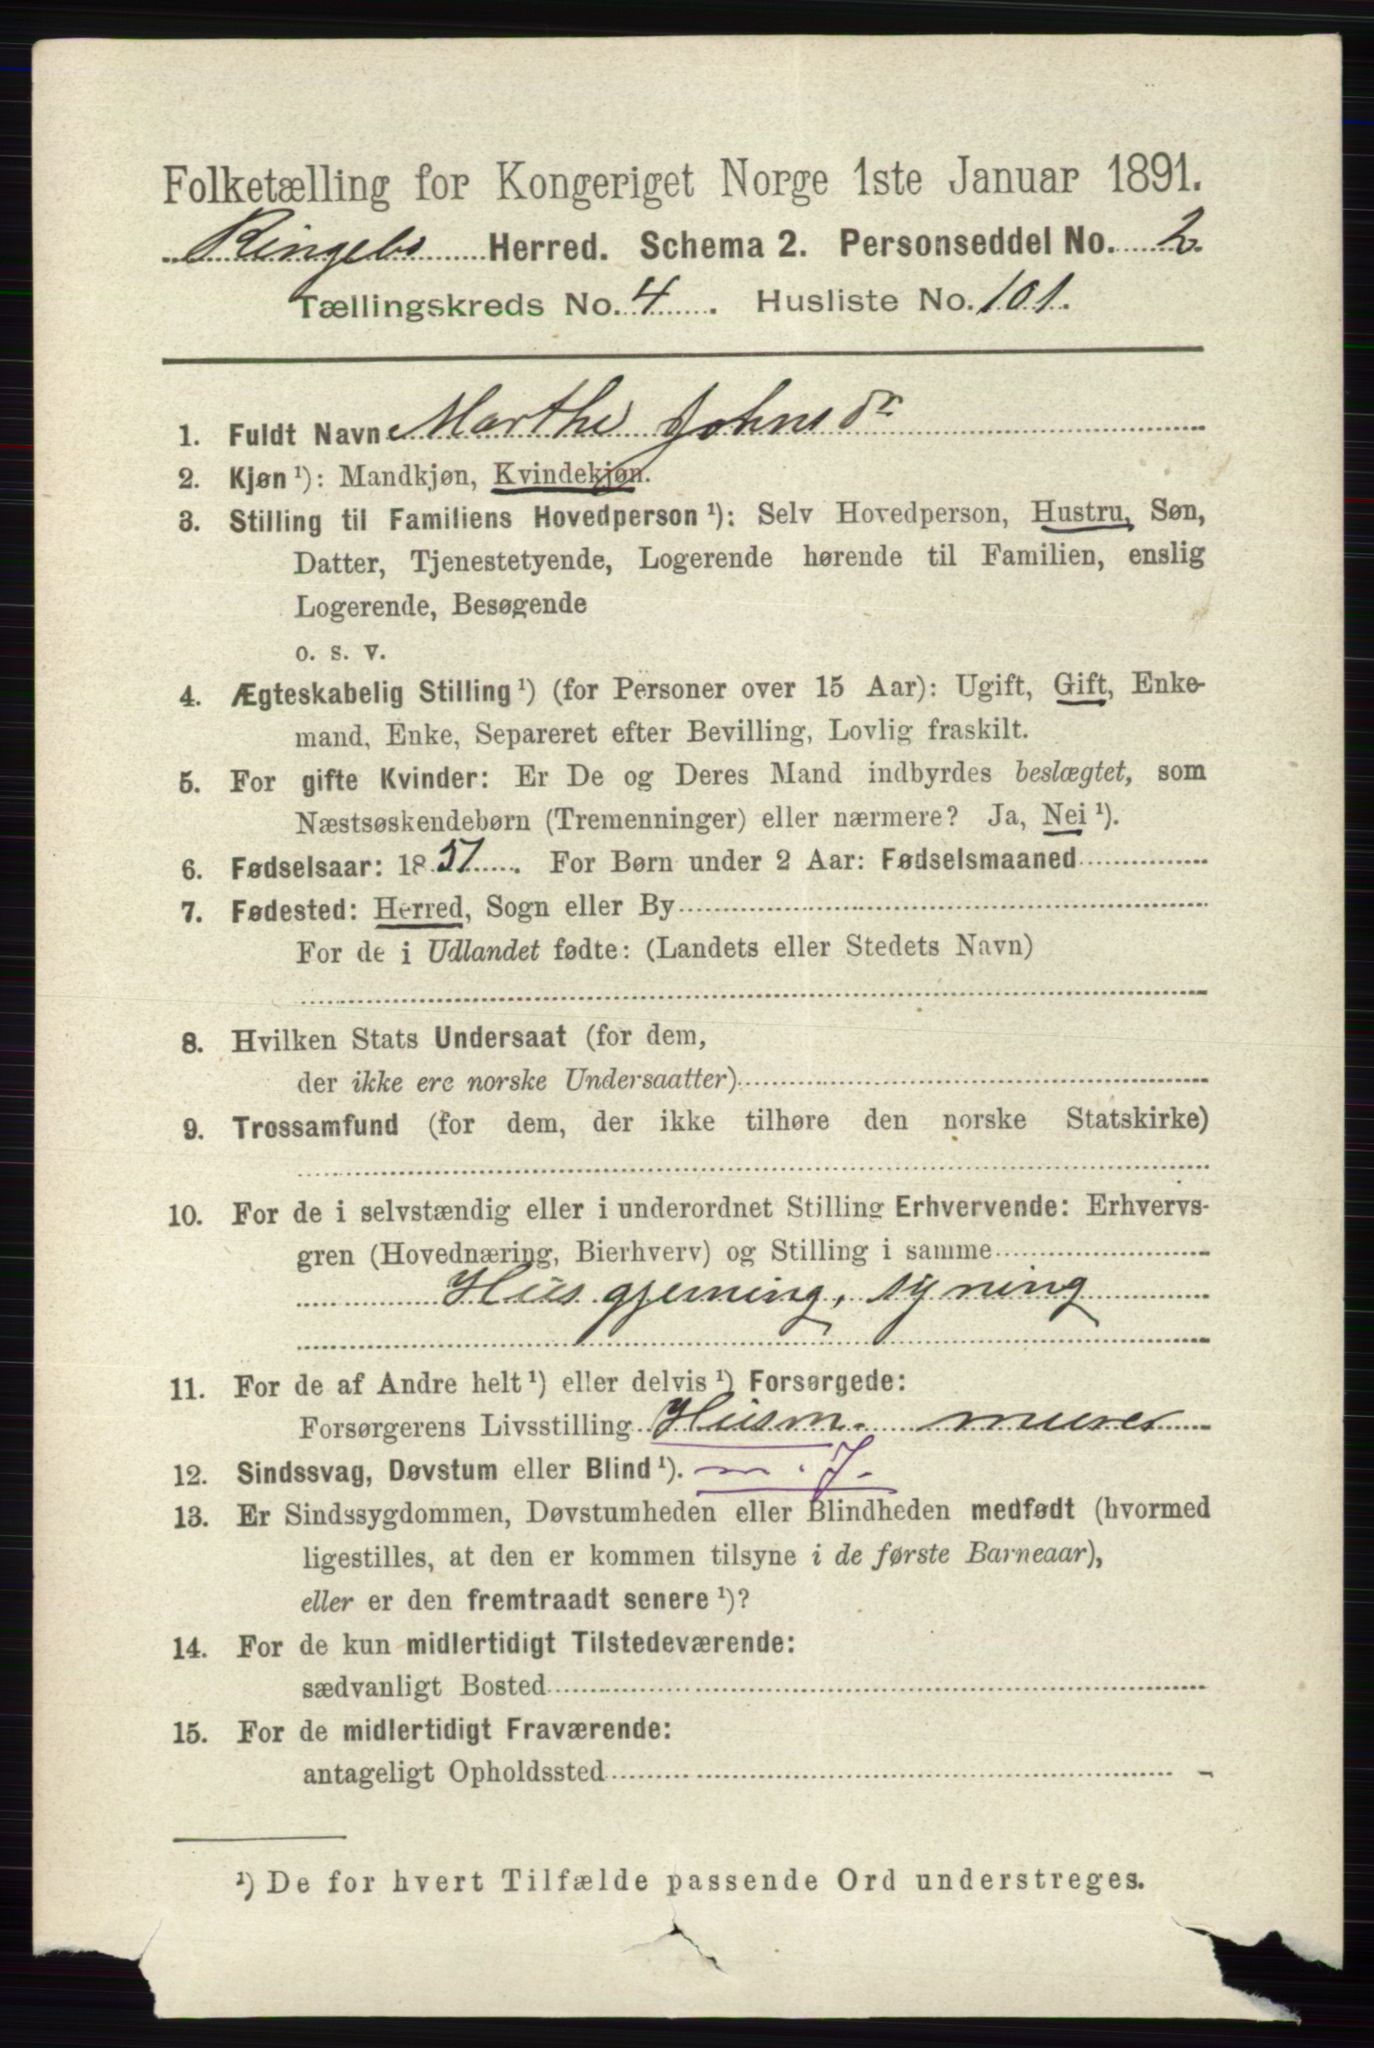 Folketælling for Kongeriget Norge 1ste Januar 1891.
Ringebo Herred. Schema 2. Personseddel No. 2.
Tællingskreds No. 4. Husliste No. 101.
1. Fuldt Navn Marthe Johnsdr
2. Kjøn ¹): Mandkjøn, Kvindekjøn.
3. Stilling til Familiens Hovedperson ¹): Selv Hovedperson, Hustru, Søn,
Datter, Tjenestetyende, Logerende hørende til Familien, enslig
Logerende, Besøgende
o. s. v.
4. Ægteskabelig Stilling ¹) (for Personer over 15 Aar): Ugift, Gift, Enke-
mand, Enke, Separeret efter Bevilling, Lovlig fraskilt.
5. For gifte Kvinder: Er De og Deres Mand indbyrdes beslægtet, som
Næstsøskendebørn (Tremenninger) eller nærmere? Ja, Nei ¹).
6. Fødselsaar: 1851. For Børn under 2 Aar: Fødselsmaaned
7. Fødested: Herred, Sogn eller By
For de i Udlandet fødte: (Landets eller Stedets Navn)
8. Hvilken Stats Undersaat (for dem,
der ikke ere norske Undersaatter)
9. Trossamfund (for dem, der ikke tilhøre den norske Statskirke)
10. For de i selvstændig eller i underordnet Stilling Erhvervende: Erhvervs-
gren (Hovednæring, Bierhverv) og Stilling i samme
Husgjerning, syning
11. For de af Andre helt ¹) eller delvis ¹) Forsørgede:
Forsørgerens Livsstilling Husm. murer
12. Sindssvag, Døvstum eller Blind ¹). m. J.
13. Er Sindssygdommen, Døvstumheden eller Blindheden medfødt (hvormed
ligestilles, at den er kommen tilsyne i de første Barneaar),
eller er den fremtraadt senere ¹)?
14. For de kun midlertidigt Tilstedeværende:
sædvanligt Bosted
15. For de midlertidigt Fraværende:
antageligt Opholdssted
¹) De for hvert Tilfælde passende Ord understreges.